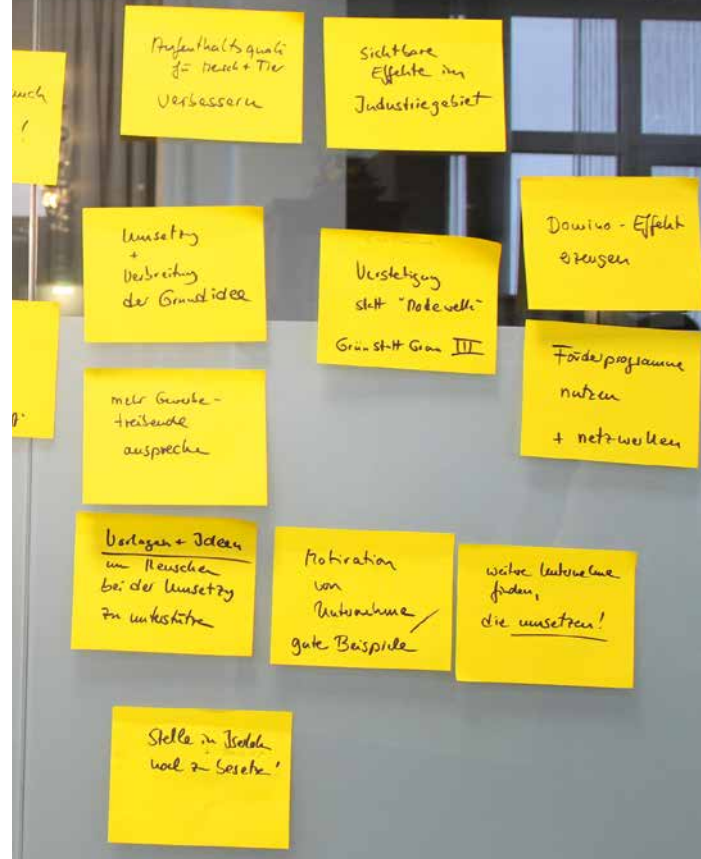 Aufenthaltsquali
für Mensch + Tier
verbessern
Sichtbare
Effekte im
Industriegebiet
!
Umsetzg
+
Verbreitung
der Grundidee
Verstetigung
statt "Modewelle"
Grün statt Grau III
Domino - Effekt
erzeugen
Förderprogramme
nutzen
+ netzwerken
mehr Gewerbe-
treibende
ansprechen
Vorlagen + Ideen
um Menschen
bei der Umsetzg
zu unterstützen
Motivation
von
Unternehmen
gute Beispiele
weitere Unternehmen
finden,
die umsetzen!
Stelle in
noch zu besetzen!